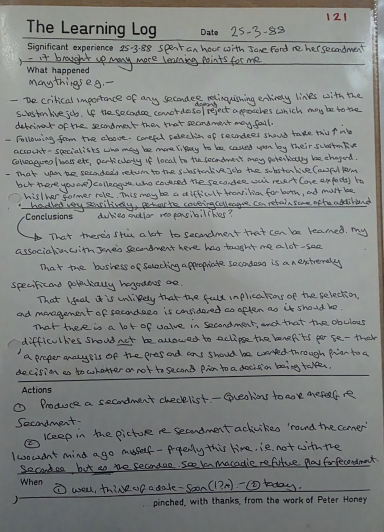 121
The Learning Log Date 25-3-88
Significant experience 25-3-88 spent an hour with Jane Ford re her secondment
- it brought up many more learning points for me
What happened
Many things e.g. -
- The critical importance of any secondee relinquishing entirely links with the
substantive job. If the secondee cannot do so/ reject approaches which may be to the
detriment of the secondment then that secondment may fail.
- Following from the above - careful selection of secondees should take this into
account - specialists who may be more likely to be called upon by their substantive
colleagues/boss etc, particularly if local to the secondment may potentially be
- That upon the secondees return to the substantive job the substantive
but there you are) colleague who covered the secondee will resort (one expects) to
his/her former role. This may be a difficult transition for both, and must be
handled very sensitively, perhaps covering colleague can retain some of the additional
Conclusions duties and/or responsibilities?
That there's still a lot to secondment that can be learned, my
association with Jane's secondment here has taught me a lot - see
That the business of selecting appropriate secondees is an extremely
specific and potentially hazardous one.
That I feel it is unlikely that the full implications of the selection,
and management of secondees is considered as often as it should be.
That there is a lot of value in secondment, and that the obvious
difficulties should not be allowed to eclipse the benefits per se - that
a proper analysis of the pros and cons should be worked through prior to a
decision as to whether or not to second prior to a decision being taken.
Actions
① Produce a secondment checklist - Questions to ask myself re
secondment.
② Keep in the picture re secondment activities 'round the corner'
I wouldn't mind a go myself - properly this time, i.e. not with the
secondee but as the secondee. See Ian re future plans for secondment.
When ① well, think of a date - soon (1?m) - ② today.
pinched, with thanks, from the work of Peter Honey